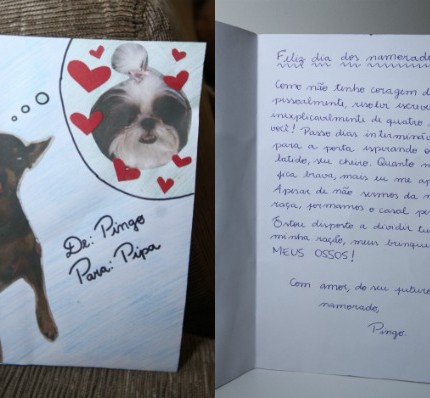 De: Pingo
Para: Pipa
Feliz dia dos namorad
Como não tinho coragem d
pessoalmente, resolvi escrev
inexplicavelmente de quatro
você! Passo dias interminá
para a porta espirando o
latido, seu cheiro. Quanto m
fica brava, mais eu me ap
Apesar de não sermos da m
raça, formamos o casal per
Estou disposto a dividir tu
minha ração, meus brinqu
MEUS OSSOS!
Com amor, do seu futuro
namorado,
Pingo.